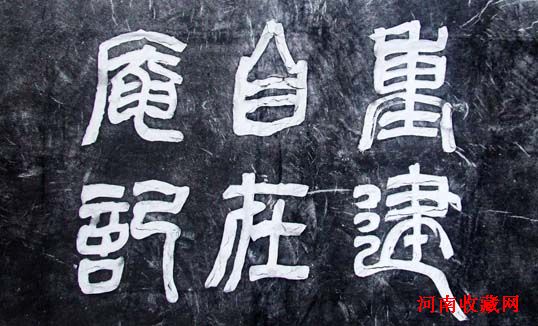 重建
自在
庵記
河南收藏网